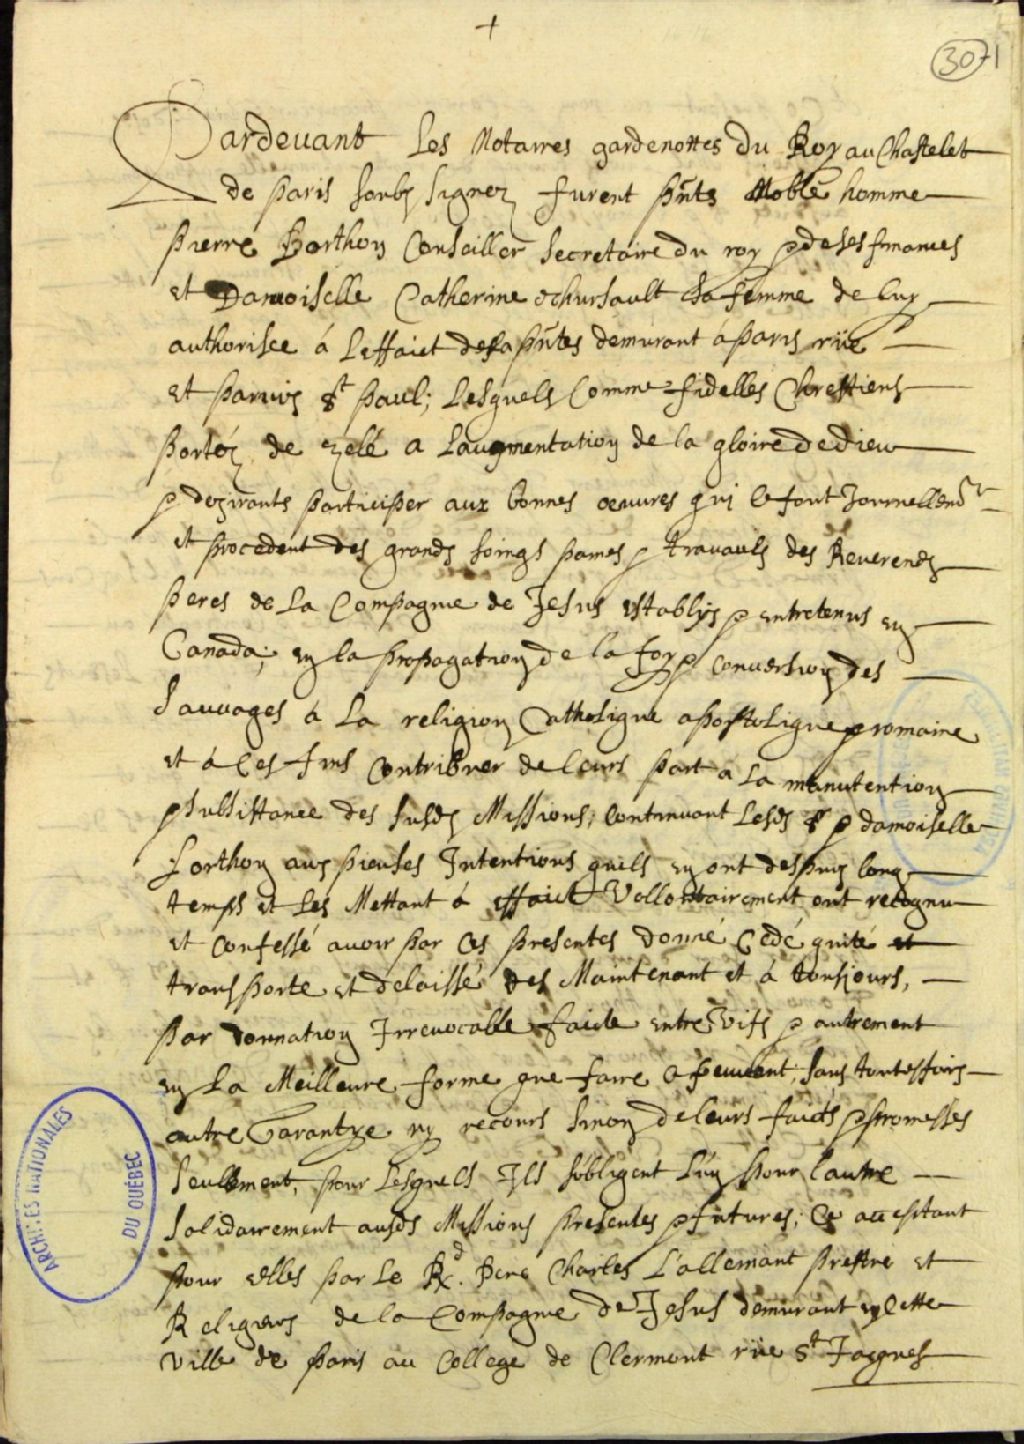 +
30
1
Pardevant Les Notaires gardenottes du Roy au Chastelet
de Paris soubz signez furent pñts Noble homme
Pierre Berthon Conseiller Secretaire du roy & de ses finances
et Damoiselle Catherine sa femme de luy
authorisee á L'effaict desd pñtes demurant á Paris rüe
et Paruis St Paul; Lesquels Comme fidelles Chrestiens
Portéz de zelé a Laugmentation de la gloire de dieu
& dezirants participer aux bonnes oeuvres qui se font Journellemt
et procedent des grands soings pames & travaulx des Reverends
Peres de La Compagnie de Jesus establys & entretenus en
Canada; en la propagation de la foy & conversion des
Sauvages á La religion Catholique apostolique & romaine
et á Ces fins Contribuer de leurs part a La manutention
& subsistance des susds Missions; Continuant Lesds Sr & damoiselle
Berthon aux pieuses Intentions quels en ont despuis long
temps et Les Mettant á effaict Vollontairement ont recognu
et Confessé avoir par Ces presentes donné Cedé quité et
transporte et delaissé des Maintenant et á tousjours,
Par donnation Irrevocable faicte entre Vifs & autrement
en La Meilleure forme que faire se peuvent, sans toutesfois
autre Garantye ny recours sinon de leurs faicts & promesses
seullement, pour Lesquels Ils s'obligent L'un pour L'autre
Solidairement ausds Missions presentes & futures; Ce acceptant
pour elles par Le Rd. Pere Charles L'allemant Prestre et
Religieux de la Compagnie de Jesus demurant en Cette
Ville de Paris au College de Clermont rüe St Jacques
ARCHIVES NATIONALES
DU QUÉBEC